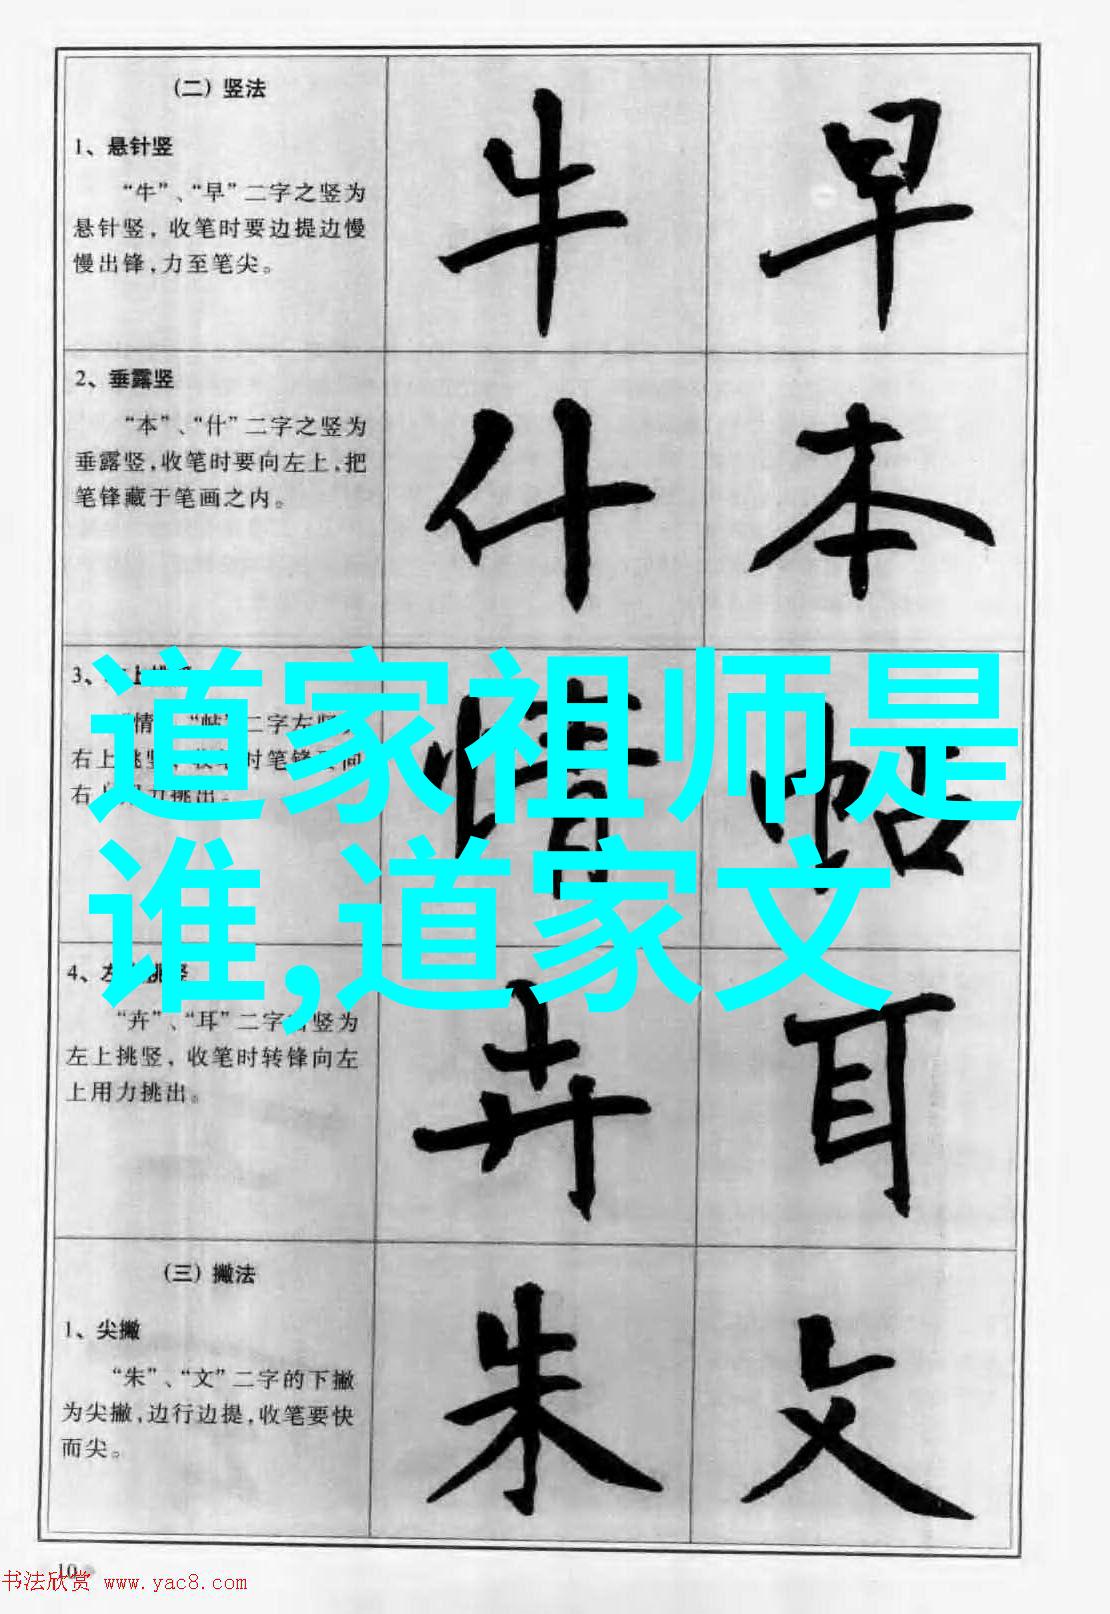 (二) 竖法
牛 早
1、悬针竖
“牛”、“早”二字之竖为
悬针竖，收笔时要边提边慢
慢出锋，力至笔尖。
2、垂露竖
什 本
“本”、“什”二字之竖为
垂露竖，收笔时要向左上，把
笔锋藏于笔画之内。
道家祖师是
谁,道家文
情 帖
4、左
“卉”、“耳”二字 竖为
左上挑竖，收笔时转锋向左
上用力挑出。
卉 耳
(三) 撇法
1、尖撇
朱 文
“朱”、“文”二字的下撇
为尖撇，边行边提，收笔要快
而尖。
10
书法欣赏 www.yac8.com